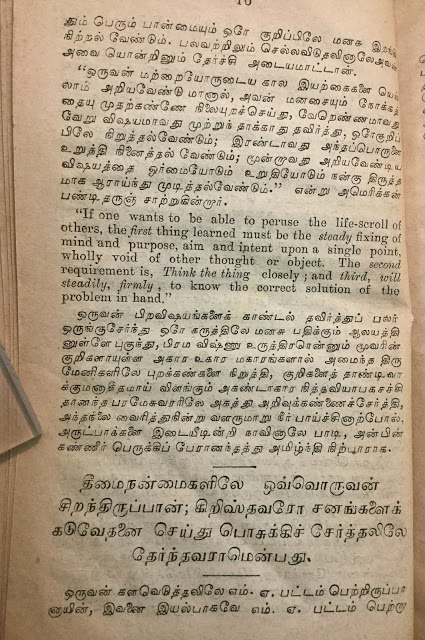 தும் பெரும் பான்மையும் ஒரே குறிப்பிலே மனசு
நிற்றல்வேண்டும். பலவற்றிலும் செல்லவிடுதலினாலேஅவன்
அவை யொன்றினும் தேர்ச்சி அடையமாட்டான்.
“ஒருவன் மற்றையோருடைய கால இயற்கைகளை யெல்
லாம் அறியவேண்டு மானால், அவன் மனசையும் நோக்கத்
தையு முதற்கண்ணே நிலையுறச்செய்து, வேறெண்ணமாவது
வேறு விஷயமாவது முற்றுந் தாக்காது தவிர்த்து, ஒரேகுறிப்
பிலே நிறுத்தல்வேண்டும்; இரண்டாவது அந்தப்பொருளை
உறுத்தி நினைத்தல் வேண்டும்; மூன்றாவது அறியவேண்டிய
விஷயத்தை ஓர்மையோடும் உறுதியோடும் நன்கு திருத்த
மாக ஆராய்ந்து முடித்தல்வேண்டும்.” என்று அமெரிக்கன்
பண்டிதருஞ் சாற்றுகின்றார்.
“If one wants to be able to peruse the life-scroll of
others, the first thing learned must be the steady fixing of
mind and purpose, aim and intent upon a single point,
wholly void of other thought or object. The second
requirement is, Think the thing closely; and third, will
steadily, firmly, to know the correct solution of the
problem in hand.”
ஒருவன் பிறவிஷயங்களைக் காண்டல் தவிர்த்துப் பலர்
ஒருங்குசேர்ந்து ஒரே கருத்திலே மனசு பதிக்கும் ஆலயத்தி
னுள்ளே புகுந்து, பிரம விஷ்ணு உருத்திரரென்னும் மூவரின்
குறிகளாயுள்ள அகார உகார மகாரங்களால் அமைந்த திரு
மேனிகளிலே புறக்கண்களை நிறுத்தி, குறிகளைத் தாண்டிவா
க்குமனாதிதமாய் விளங்கும் அகண்டாகார நித்தவியாபகசச்சி
தானந்த பரமேசுவரரிலே அகத்து அறிவுக்கண்ணைச்சேர்த்தி,
அந்தநிலை வைரித்துநின்று வளருமாறு நீர் பாய்ச்சினாற்போல்,
அருட்பாக்களை இடையீடின்றி நாவினாலே பாடி, அன்பின்
கண்ணீர் பெருக்கிப் பேரானந்தத்து அமிழ்ந்தி நிற்பாராக.
தீமைநன்மைகளிலே ஒவ்வொருவன்
சிறந்திருப்பான்; கிறிஸ்தவரோ சனங்களைக்
கடுவேதனை செய்து பொசுக்கிச் சேர்த்தலிலே
தேர்ந்தவராமென்பது.
ஒருவன் களவெடுத்தலிலே எம். ஏ. பட்டம் பெற்றிருப்பா
னாயின், இவனை இயல்பாகவே எம். ஏ. பட்டம் பெற்று